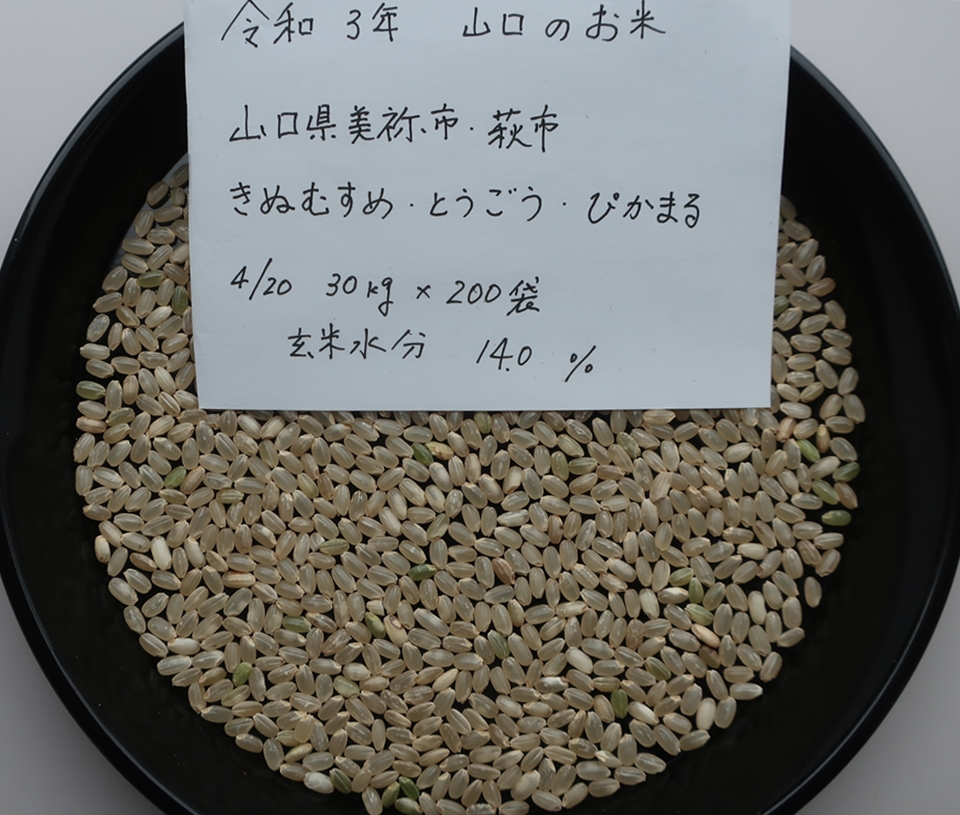 令和 3年 山口のお米
山口県美祢市・萩市
きぬむすめ・とうごう・ぴかまる
4/20 30kg × 200袋
玄米水分 14.0 %